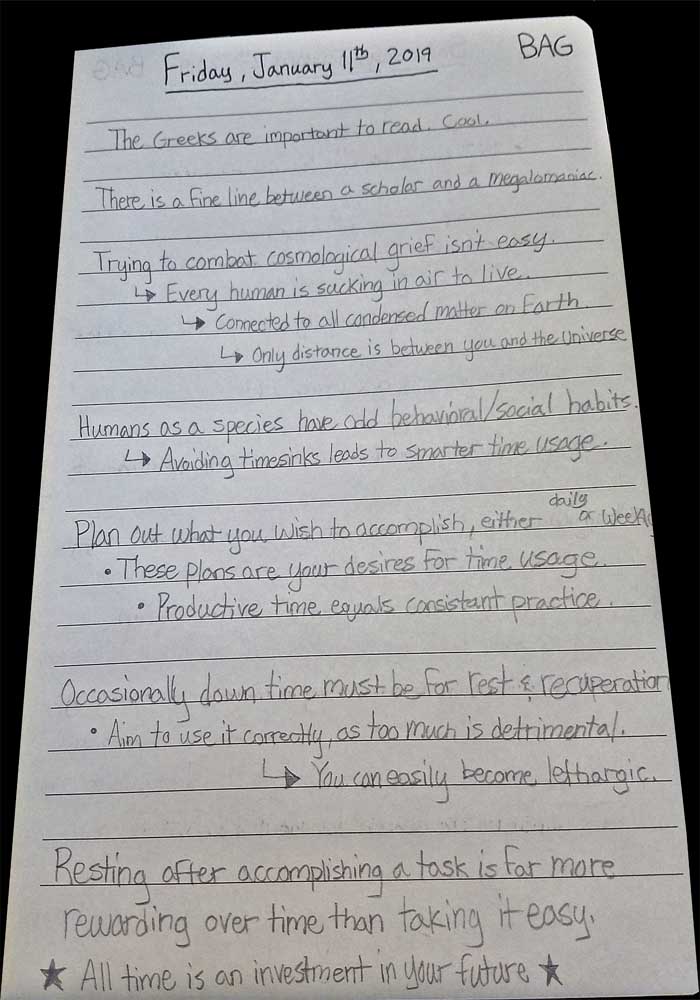 Friday, January 11th, 2019 BAG
The Greeks are important to read. Cool.
There is a fine line between a scholar and a megalomaniac.
Trying to combat cosmological grief isn't easy.
↳ Every human is sucking in air to live.
↳ Connected to all condensed matter on Earth
↳ Only distance is between you and the Universe
Humans as a species have odd behavioral/social habits.
↳ Avoiding timesinks leads to smarter time usage.
Plan out what you wish to accomplish, either daily or Weekly
• These plans are your desires for time usage.
• Productive time equals consistant practice.
Occasionally down time must be for rest & recuperation
• Aim to use it correctly, as too much is detrimental.
↳ You can easily become lethargic.
Resting after accomplishing a task is far more
rewarding over time than taking it easy.
★ All time is an investment in your future ★